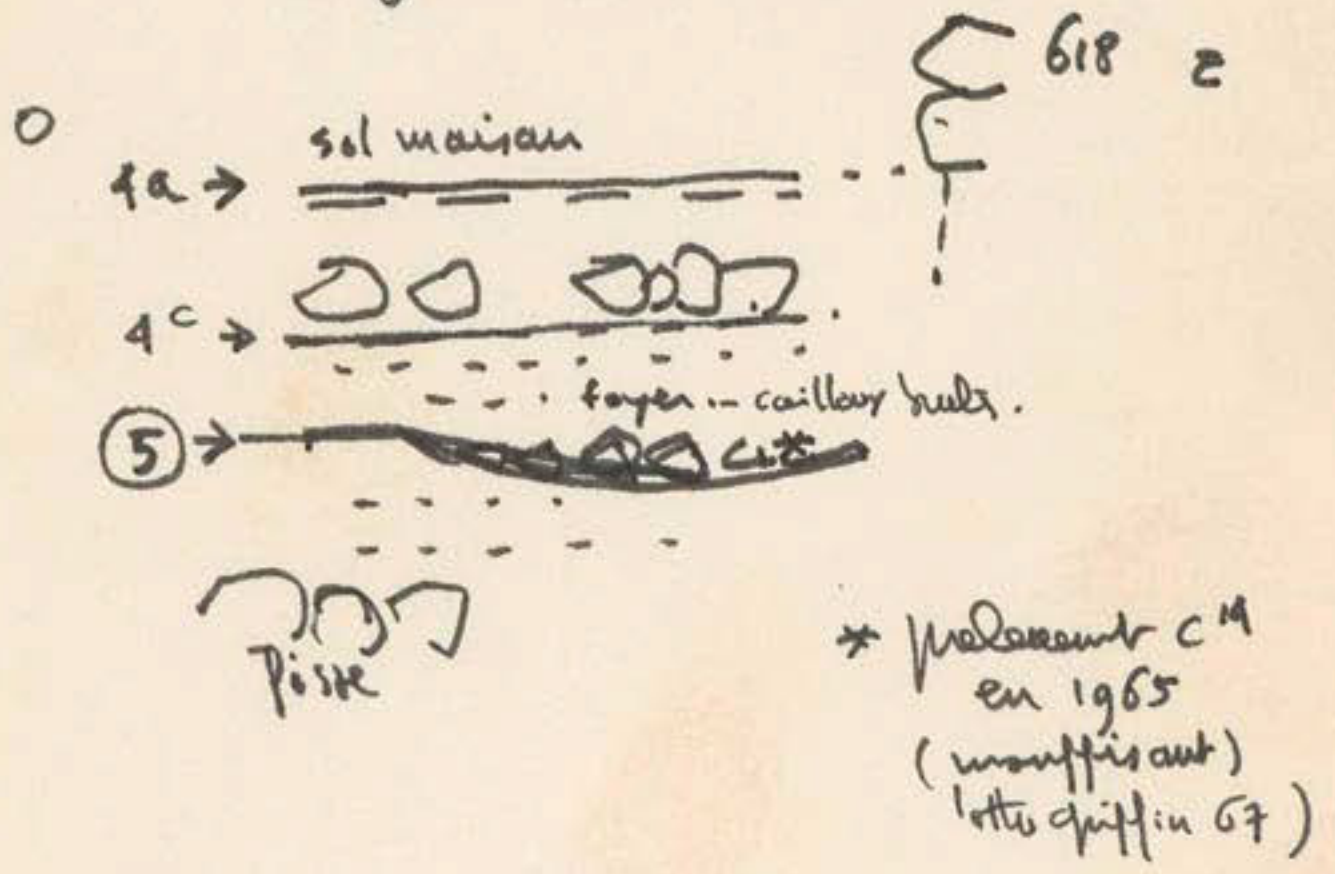 618 z
O
sol maison
4a →
4c →
foyer -- cailloux brulés.
5 →
*
Pisse
* prelevement C14
en 1965
(insuffisant)
lettre griffin 67)